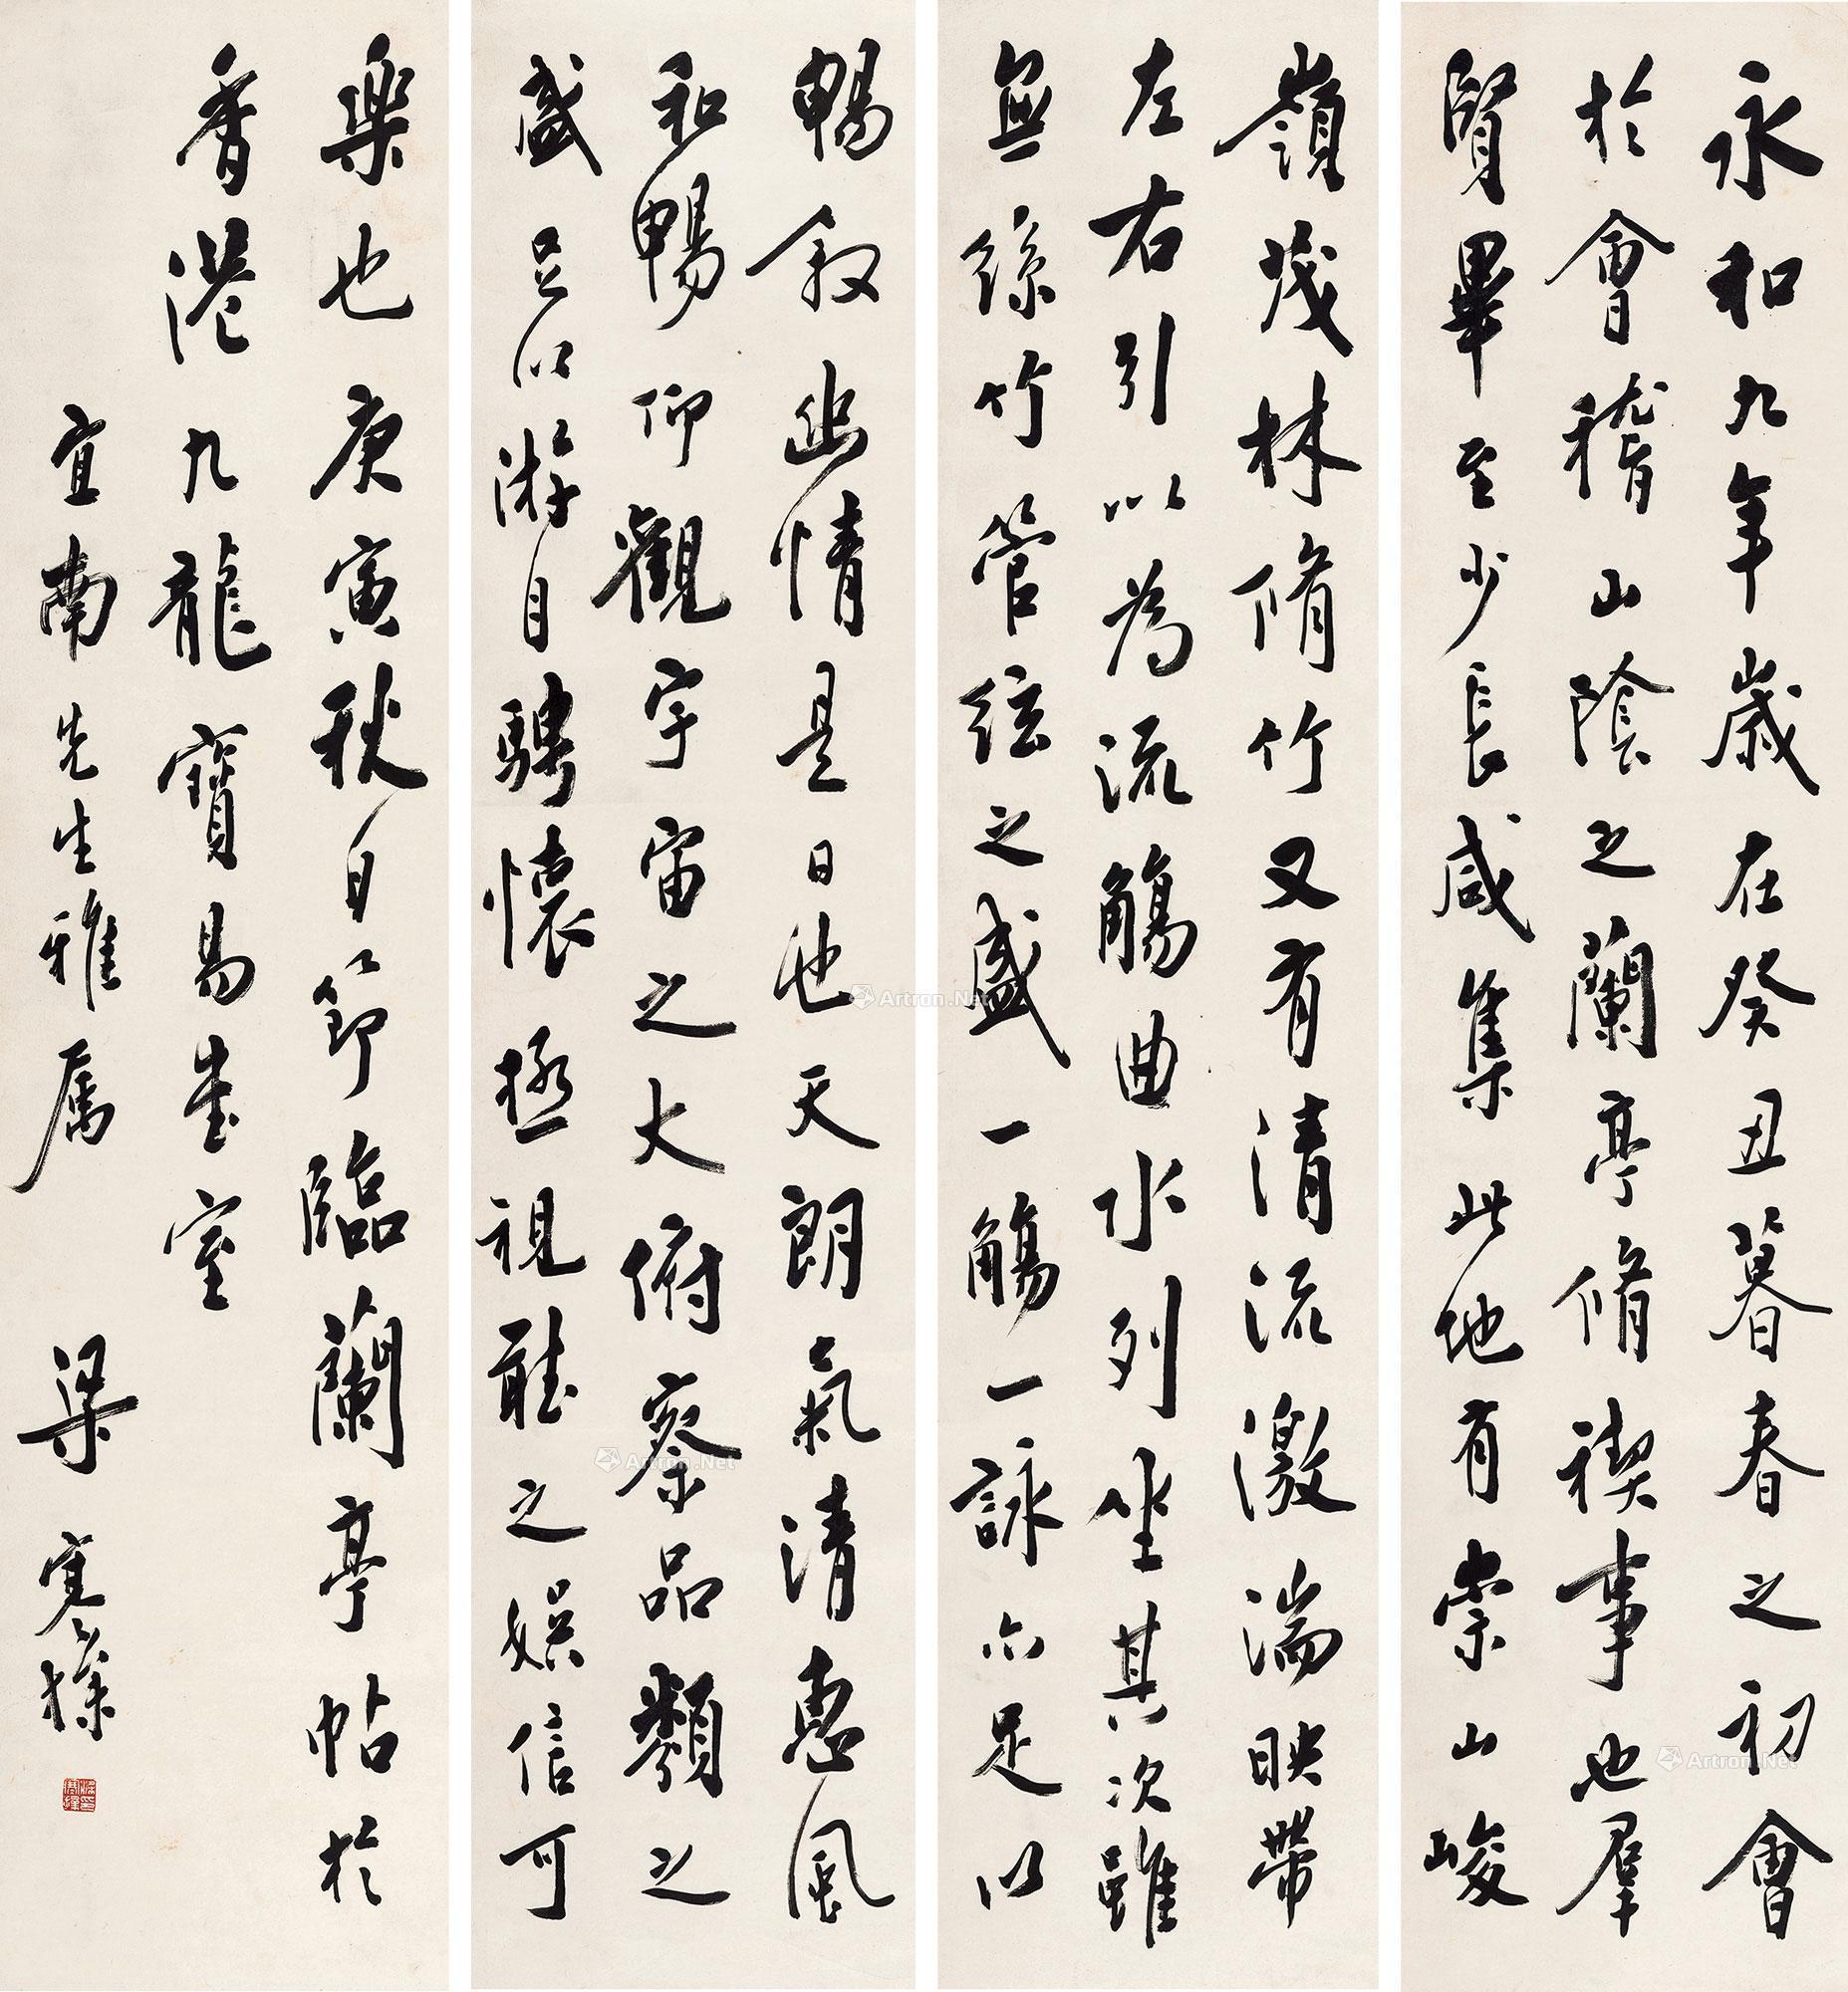 永和九年歲在癸丑暮春之初會
於會稽山陰之蘭亭脩禊事也羣
賢畢至少長咸集此地有崇山峻
嶺茂林脩竹又有清流激湍映帶
左右引以為流觴曲水列坐其次雖
無絲竹管絃之盛一觴一詠亦足以
暢敘幽情是日也天朗氣清惠風
和暢仰觀宇宙之大俯察品類之
盛足以游目騁懷極視聽之娛信可
樂也庚寅秋日節臨蘭亭帖於
香港九龍寶易堂室
宜南先生雅屬 梁寒操
Artron.Net
Artron.Net
Artron.Net